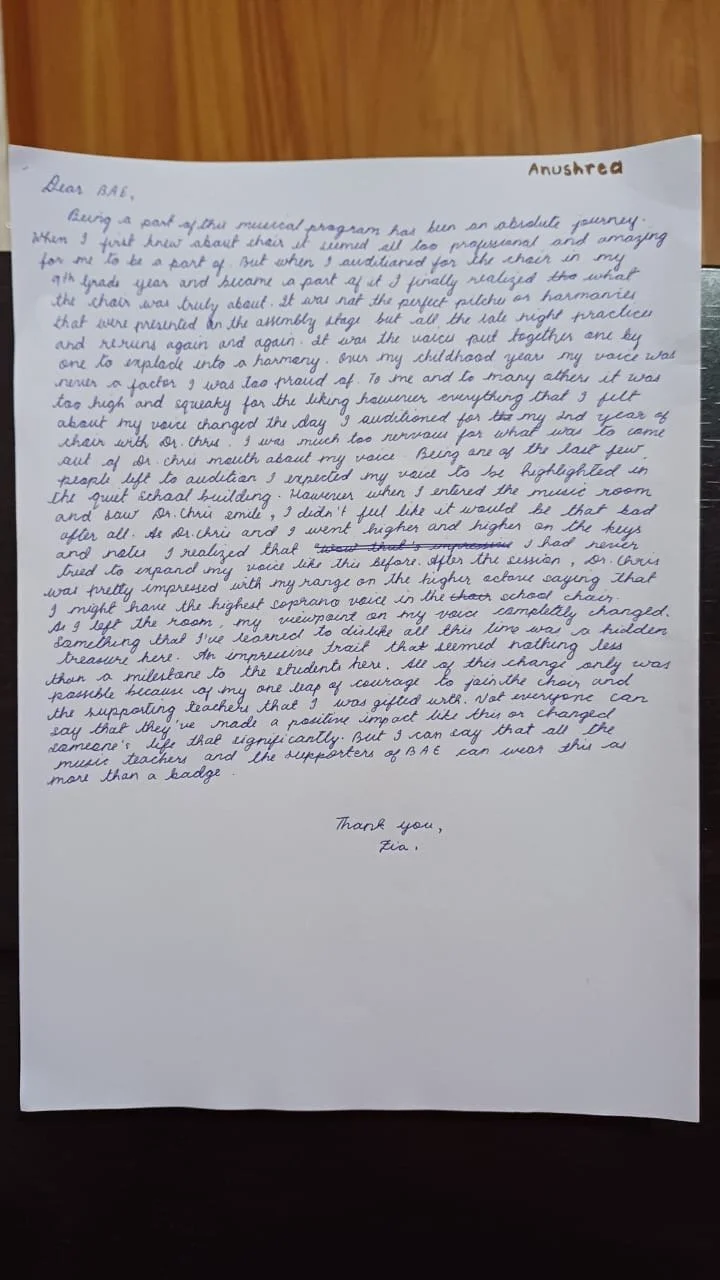 Anushrea
Dear BAE,
Being a part of this musical program has been an absolute journey.
When I first knew about choir it seemed all too professional and amazing
for me to be a part of. But when I auditioned for the choir in my
9th Grade year and became a part of it I finally realized the what
the choir was truly about. It was not the perfect pitches or harmonies
that were presented on the assembly stage but all the late night practices
and reruns again and again. It was the voices put together one by
one to explode into a harmony. Over my childhood years my voice was
never a factor I was too proud of. To me and to many others it was
too high and squeaky for the liking however everything that I felt
about my voice changed the day I auditioned for the my 2nd year of
choir with Dr. Chris. I was much too nervous for what was to come
out of Dr. Chris mouth about my voice. Being one of the last few
people left to audition I expected my voice to be highlighted in
the quiet school building. However when I entered the music room
and saw Dr. Chris smile, I didn't feel like it would be that bad
after all. As Dr. Chris and I went higher and higher on the keys
and notes I realized that "wow that's impressive I had never
tried to expand my voice like this before. After the session, Dr. Chris
was pretty impressed with my range on the higher octave saying that
I might have the highest soprano voice in the choir school choir.
As I left the room, my viewpoint on my voice completely changed.
Something that I've learned to dislike all this time was a hidden
treasure here. An impressive trait that seemed nothing less
than a milestone to the students here. All of this change only was
possible because of my one leap of courage to join the choir and
the supporting teachers that I was gifted with. Not everyone can
say that they've made a positive impact like this or changed
someone's life that significantly. But I can say that all the
music teachers and the supporters of BAE can wear this as
more than a badge.
Thank you,
Zia.